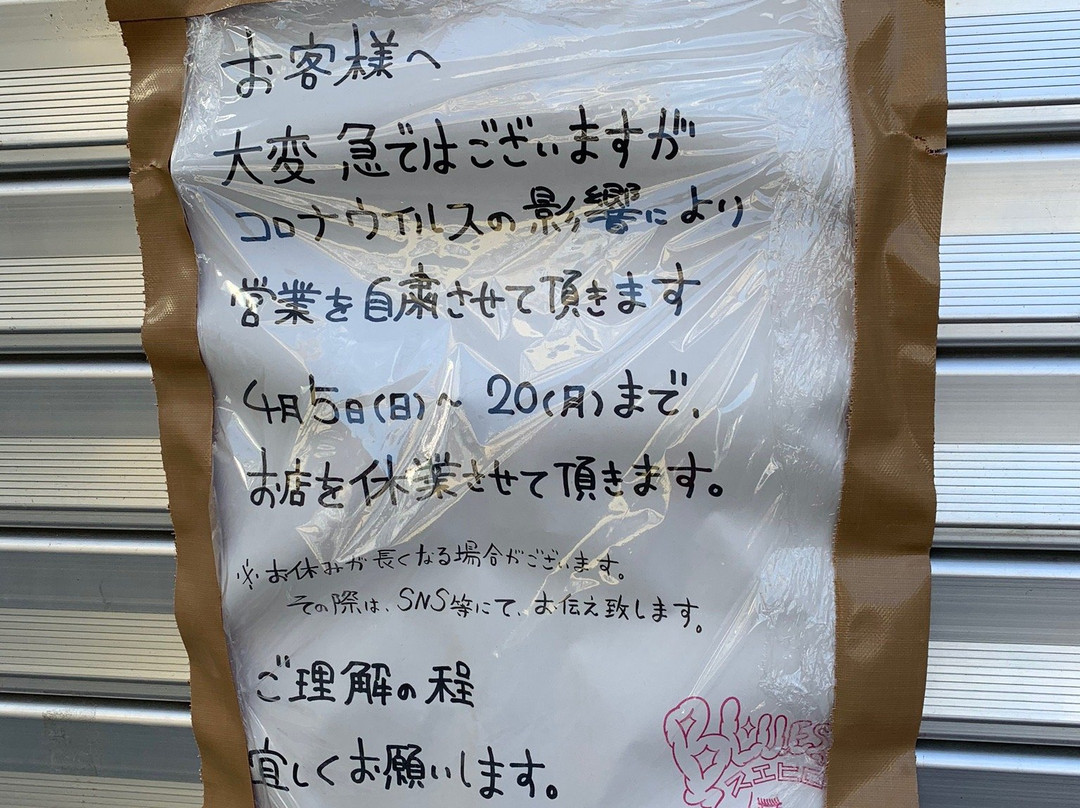 お客様へ
大変 急ではございますが
コロナウイルスの影響により
営業を自粛させて頂きます
4月5日(日)～ 20(月)まで、
お店を休業させて頂きます。
※お休みが長くなる場合がございます。
その際は、SNS等にて、お伝え致します。
ご理解の程
宜しくお願いします。
BLUES
スエヒロ